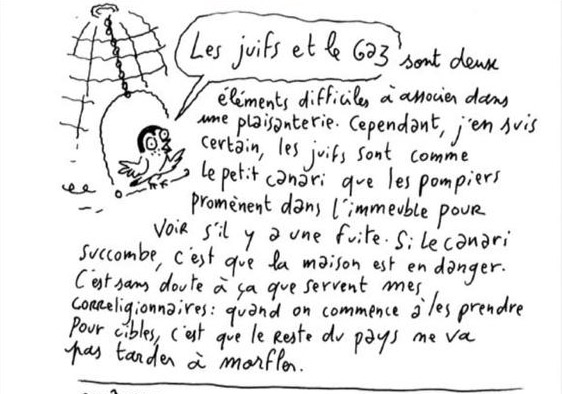 Les juifs et le Gaz sont deux
éléments difficiles à associer dans
une plaisanterie. Cependant, j'en suis
certain, les juifs sont comme
le petit canari que les pompiers
promènent dans l'immeuble pour
voir s'il y a une fuite. Si le canari
succombe, c'est que la maison est en danger.
C'est sans doute à ça que servent mes
correligionnaires: quand on commence à les prendre
pour cibles, c'est que le reste du pays ne va
pas tarder à morfler.